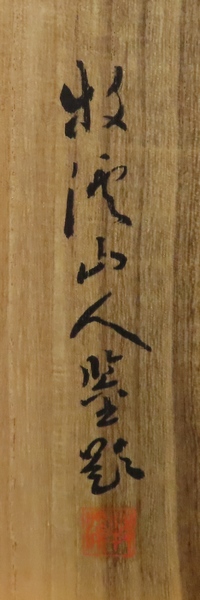 牧溪山人鑒題